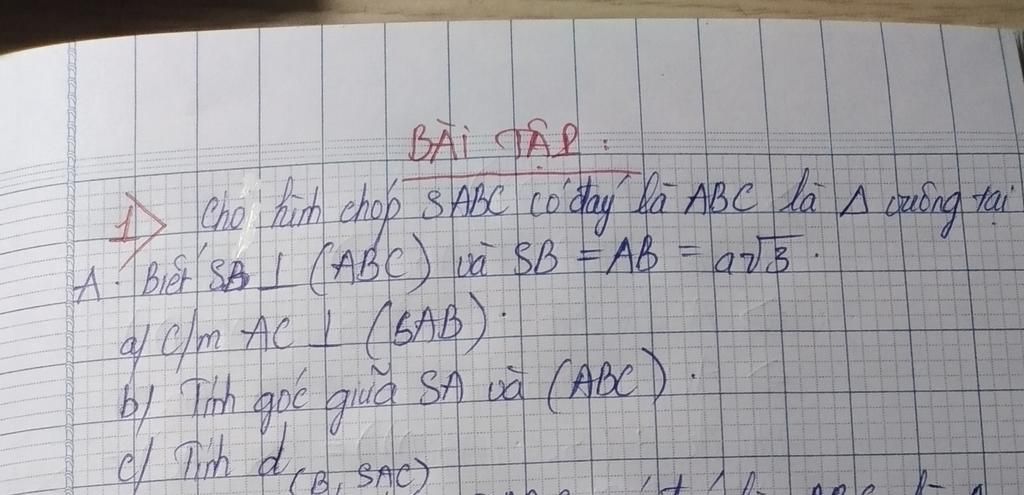 BÀI TẬP :
1> Cho hình chóp SABC có đáy là ABC là Δ vuông tại
A. Biết SB ⊥ (ABC) và SB = AB = a√3.
a/ C/m AC ⊥ (SAB).
b/ Tính góc giữa SA và (ABC).
c/ Tính d(B, SAC)